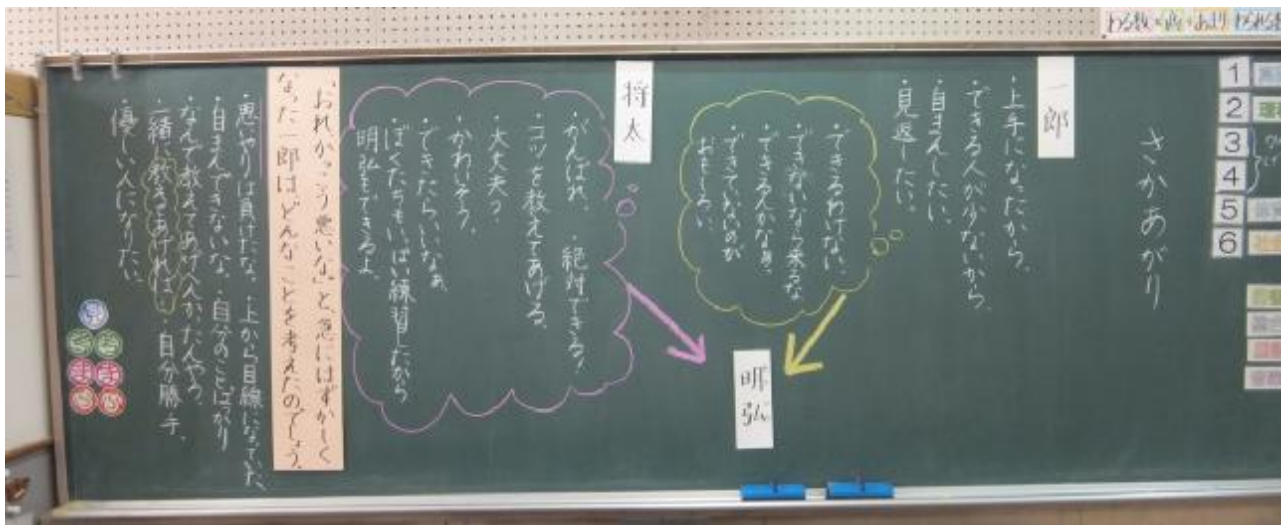 わる数×商+あまり
1
2 理
3
4
5
6
さかあがり
一郎
・上手になったから。
・できる人が少ないから。
・自まんしたい。
・見返したい。
・できるわけない。
・できないなら来るな
・できるんかなぁ。
・できていないのが
おもしろい
明弘
将太
・がんばれ。 絶対できる!
・コツを教えてあげる。
・大丈夫?
・かわいそう。
・できたら、いいなぁ
・ぼくたちもいっぱい練習したから
明弘もできるよ。
「おれかっこう悪いな」と、急にはずかしく
なった一郎はどんなことを考えたのでしょう。
・思いやりは負けたな。・上から目線になっていた。
・自まんできないな。・自分のことばっかり
・なんで教えてあげへんかったんやろ。
・一緒に教えてあげれば… ・自分勝手。
・優しい人になりたい。